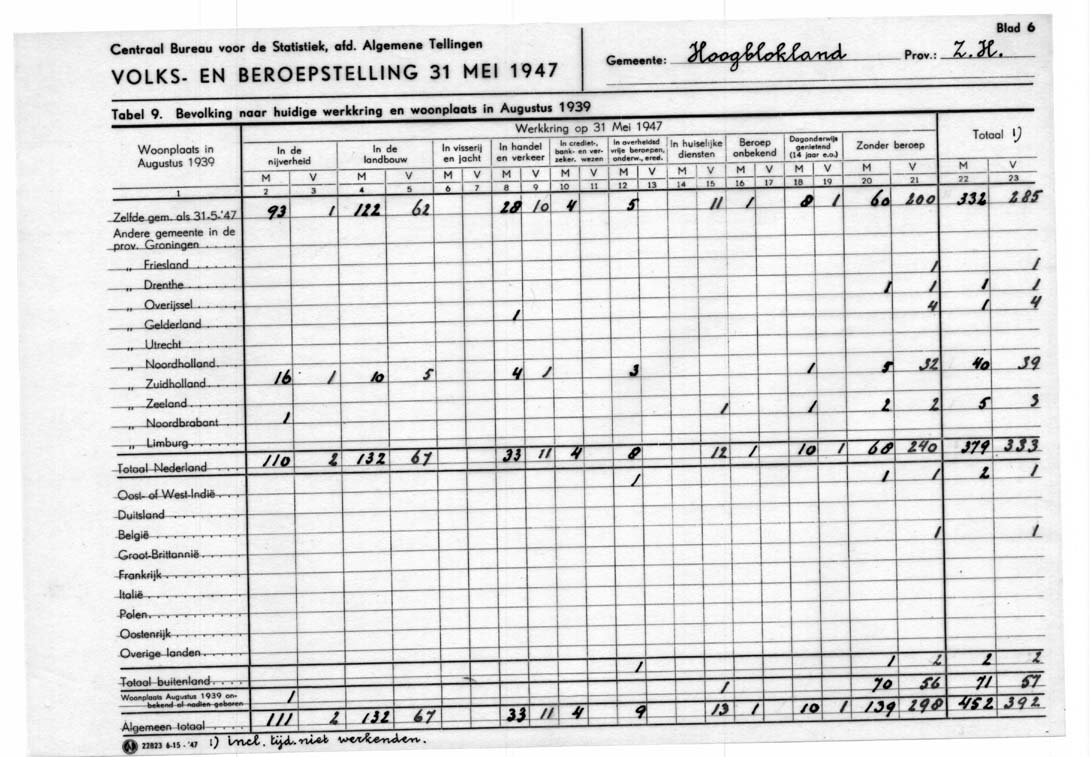 Blad 6
Centraal Bureau voor de Statistiek, afd. Algemene Tellingen
VOLKS- EN BEROEPSTELLING 31 MEI 1947
Gemeente: Hoogblokland Prov.: Z.H.
Tabel 9. Bevolking naar huidige werkkring en woonplaats in Augustus 1939
Woonplaats in
Augustus 1939
Werkkring op 31 Mei 1947
In de
nijverheid
In de
landbouw
In visserij
en jacht
In handel
en verkeer
In crediet-,
bank- en ver-
zeker. wezen
In overheidsd
vrije beroepen,
onderw., ered.
In huiselijke
diensten
Beroep
onbekend
Dagonderwijs
genietend
(14 jaar e.o.)
Zonder beroep
Totaal 1)
M V M V M V M V M V M V M V M V M V M V M V
1 2 3 4 5 6 7 8 9 10 11 12 13 14 15 16 17 18 19 20 21 22 23
Zelfde gem. als 31-5-'47 93 1 122 62 28 10 4 5 11 1 8 1 60 200 332 285
Andere gemeente in de
prov. Groningen . . . .
„ Friesland . . . . .
„ Drenthe . . . . . 1 1
„ Overijssel . . . . . 1 1 1 1
„ Gelderland . . . . 1 4 1 4
„ Utrecht . . . . . .
„ Noordholland . . .
„ Zuidholland . . . . 16 1 10 5 4 1 3 1 5 32 40 39
„ Zeeland . . . . . .
„ Noordbrabant . . . 1 1 1 2 2 5 3
„ Limburg . . . . . .
Totaal Nederland . . . . 110 2 132 67 33 11 4 8 12 1 10 1 68 240 379 333
Oost- of West-Indië . . . 1 1 1 2 1
Duitsland . . . . . . . .
België . . . . . . . . . .
Groot-Brittannië . . . . . 1 1
Frankrijk . . . . . . . . .
Italië . . . . . . . . . .
Polen . . . . . . . . . .
Oostenrijk . . . . . . . .
Overige landen . . . . .
Totaal buitenland . . . . 1 1 2 2 2
Woonplaats Augustus 1939 on-
bekend of nadien geboren 1 1 70 56 71 57
Algemeen totaal . . . . . 111 2 132 67 33 11 4 9 13 1 10 1 139 298 452 392
22823 6-15 - '47 1) incl. tijd. niet werkenden.